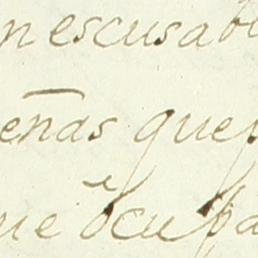 n escusabl
eñas quep
ue ocupa